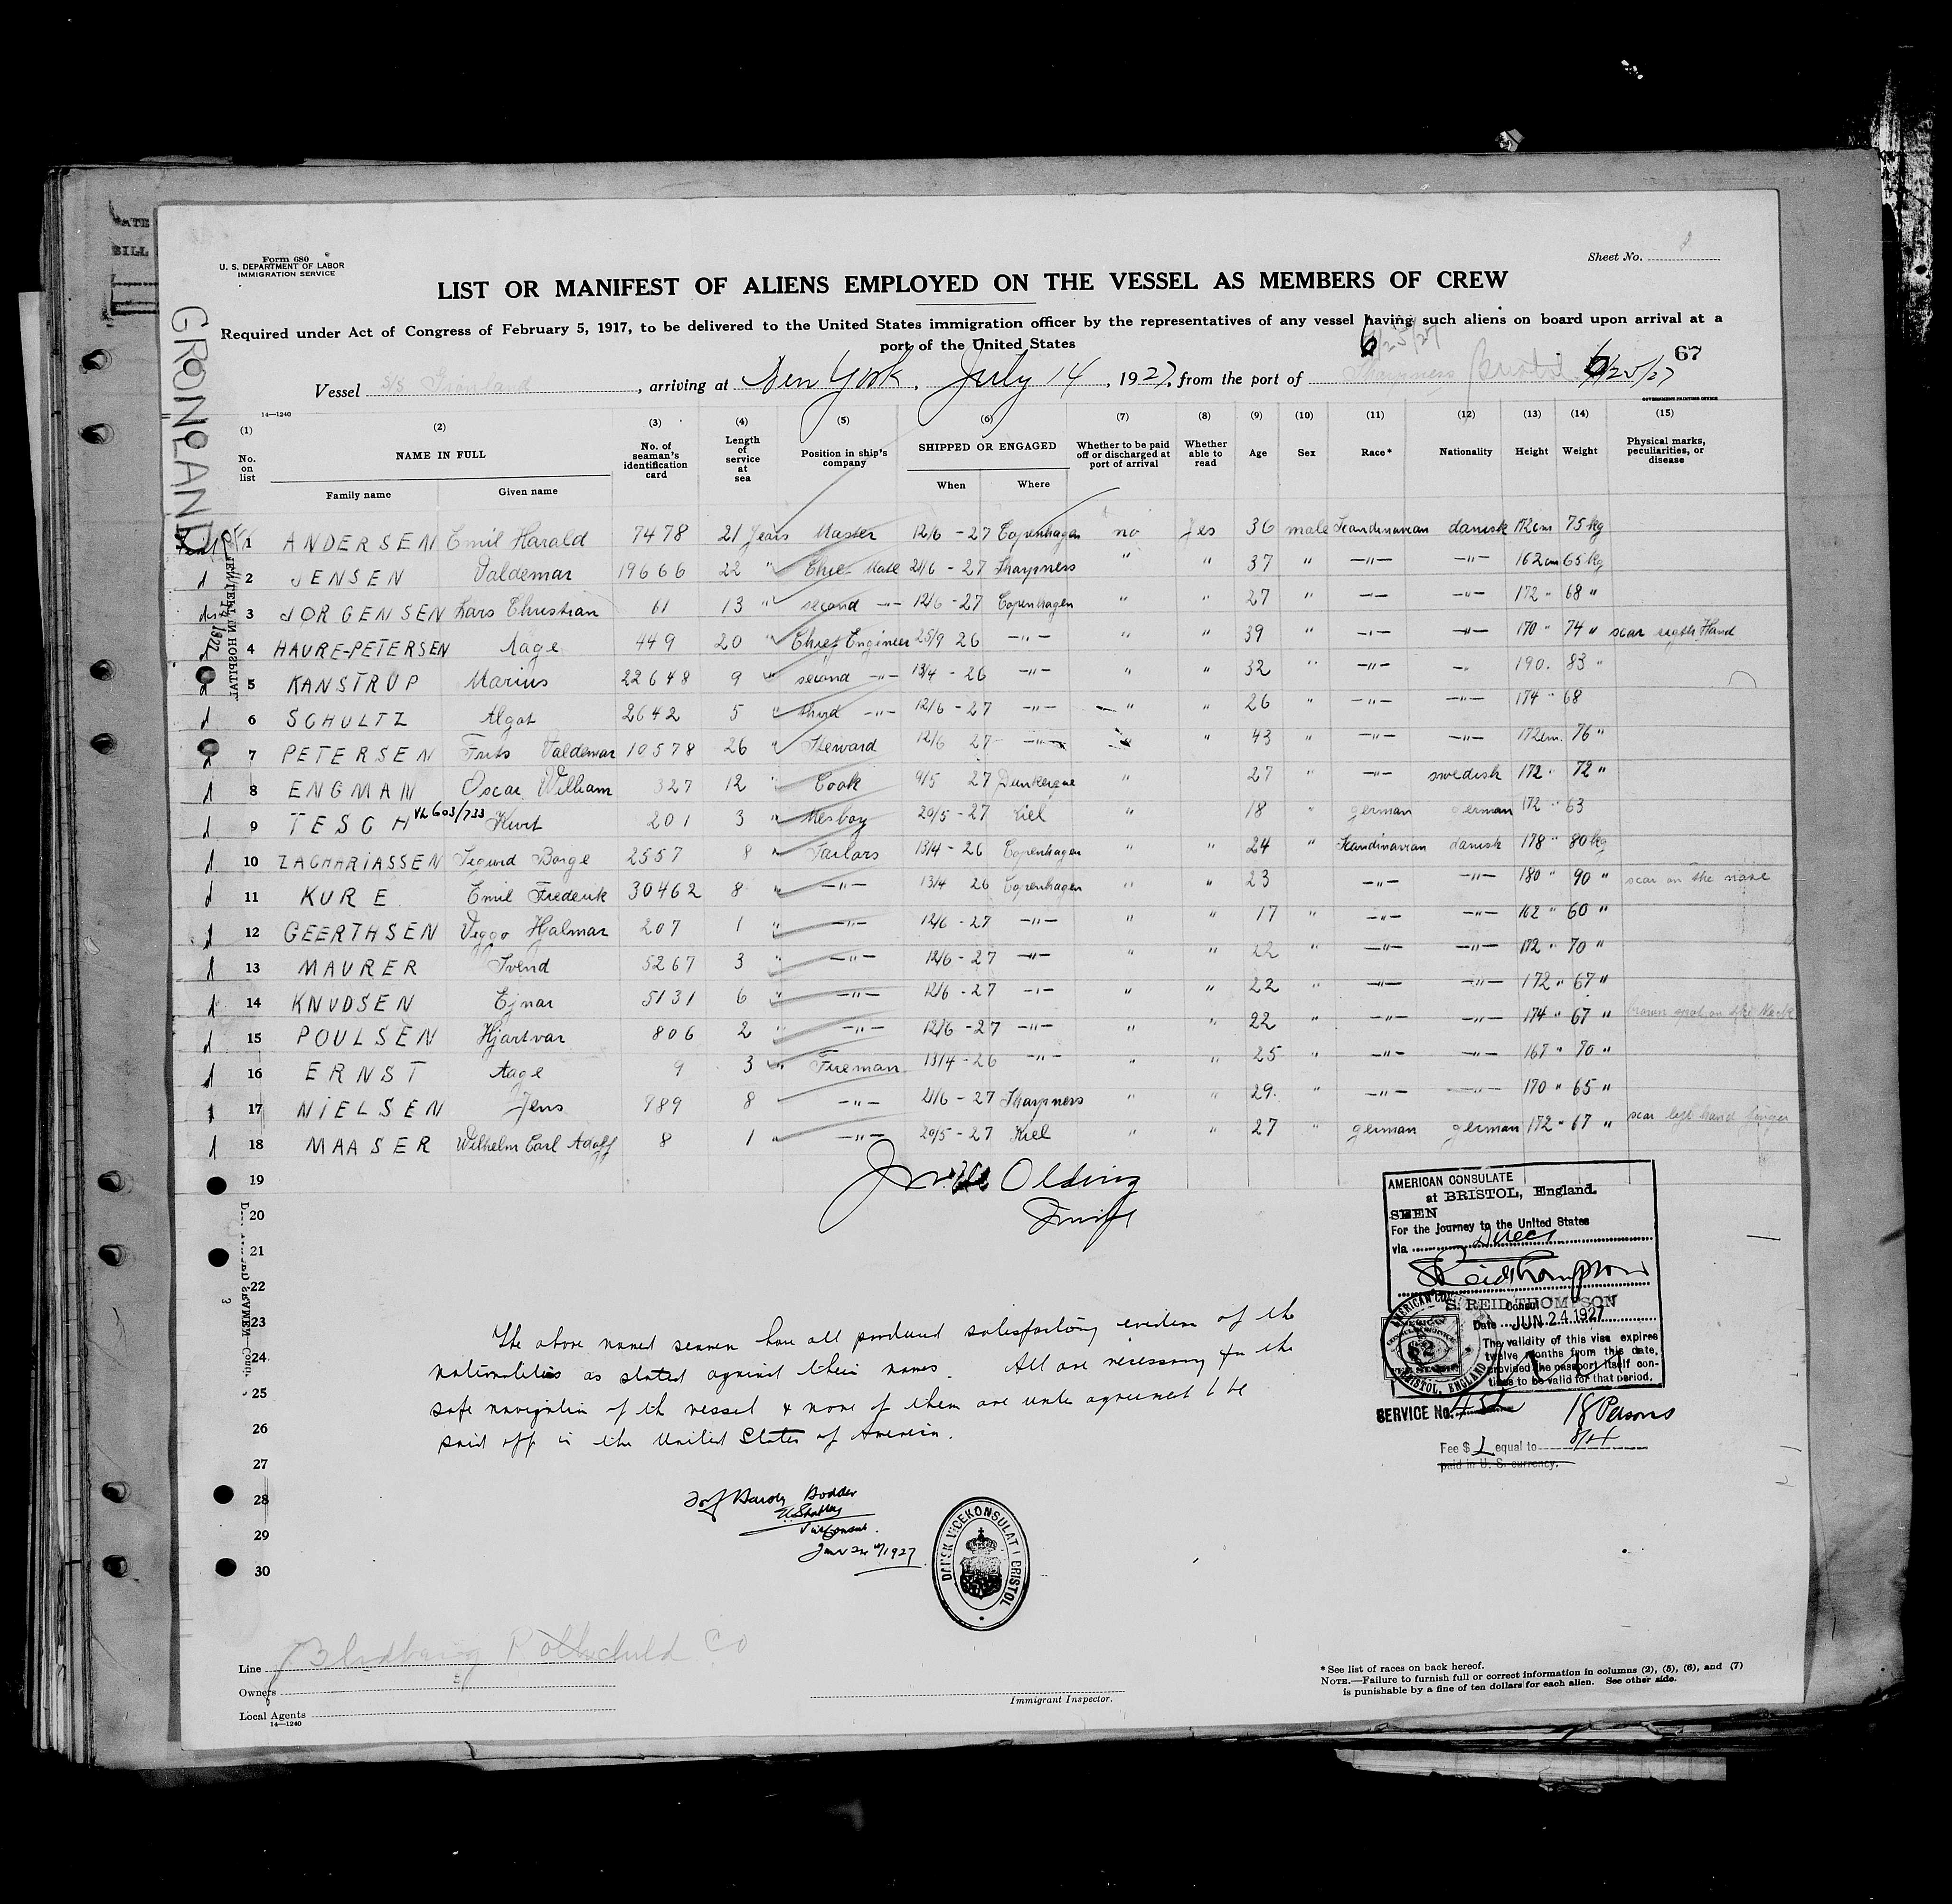 Form 680
U. S. DEPARTMENT OF LABOR
IMMIGRATION SERVICE
Sheet No.
LIST OR MANIFEST OF ALIENS EMPLOYED ON THE VESSEL AS MEMBERS OF CREW
Required under Act of Congress of February 5, 1917, to be delivered to the United States immigration officer by the representatives of any vessel having such aliens on board upon arrival at a
port of the United States
GRONLAND
67
Vessel S/S Grönland, arriving at New York, July 14, 1927, from the port of Sharpness Bristol 6/25/27
14—1240
GOVERNMENT PRINTING OFFICE
(1) (2) (3) (4) (5) (6) (7) (8) (9) (10) (11) (12) (13) (14) (15)
No. on list NAME IN FULL No. of seaman's identification card Length of service at sea Position in ship's company SHIPPED OR ENGAGED Whether to be paid off or discharged at port of arrival Whether able to read Age Sex Race* Nationality Height Weight Physical marks, peculiarities, or disease
Family name Given name When Where
1 ANDERSEN Emil Harald 7478 21 Years Master 12/6 - 27 Copenhagen no Yes 36 male Scandinavian danish 172cm 75 kg
2 JENSEN Valdemar 19666 22 " Chief Mate 21/6 - 27 Sharpness " " 37 " —"— —"— 162cm 65 kg
3 JORGENSEN Lars Christian 61 13 " second —"— 12/6 - 27 Copenhagen " " 27 " —"— —"— 172 " 68 "
4 HAURE-PETERSEN Aage 449 20 " Chief Engineer 25/9 26 —"— " " 39 " —"— —"— 170 " 74 " scar right Hand
5 KANSTRUP Marius 22648 9 " second —"— 13/4 - 26 —"— " " 32 " —"— —"— 190. 83 "
6 SCHULTZ Algot 2642 5 " third —"— 12/6 - 27 —"— " " 26 " —"— —"— 174 " 68
7 PETERSEN Frits Valdemar 10578 26 " Steward 12/6 27 —"— " " 43 " —"— —"— 172cm. 76 "
8 ENGMAN Oscar William 327 12 " Cook 9/5 27 Dunkerque " " 27 " —"— swedish 172 " 72 "
9 TESCH Kurt 201 3 " Mesboy 29/5 - 27 Kiel " " 18 " german german 172 " 63
10 ZACHARIASSEN Sigurd Borge 2557 8 " Sailors 13/4 - 26 Copenhagen " " 24 " Scandinavian danish 178 " 80 kg
11 KURE Emil Frederik 30462 8 " —"— 13/4 26 Copenhagen " " 23 —"— —"— 180 " 90 " scar on the nose
12 GEERTHSEN Viggo Hjalmar 207 1 " —"— 12/6 - 27 —"— " " 17 " —"— —"— 162 " 60 "
13 MAURER Svend 5267 3 " —"— 12/6 - 27 —"— " " 22 " —"— —"— 172 " 70 "
14 KNUDSEN Ejnar 5131 6 " —"— 12/6 - 27 —"— " " 22 " —"— —"— 172 " 67 "
15 POULSEN Hjartvar 806 2 " —"— 12/6 - 27 —"— " " 22 " —"— —"— 174 " 67 " brown spot on the Neck
16 ERNST Aage 9 3 " Fireman 13/4 - 26 —"— " " 25 " —"— —"— 167 " 70 "
17 NIELSEN Jens 989 8 —"— 21/6 - 27 Sharpness " " 29. " —"— —"— 170 " 65 "
18 MAASER Wilhelm Carl Adolf 8 1 " —"— 29/5 - 27 Kiel " " 27 " german german 172 " 67 " scar left hand finger
19
20
21
22
23
24
25
26
27
28
29
30
Olding
AMERICAN CONSULATE
at BRISTOL, England.
SEEN
For the Journey to the United States
via Direct
S. REID THOMPSON
Consul
Date JUN 24 1927
The validity of this visa expires
twelve months from this date,
provided the passport itself con-
tinues to be valid for that period.
SERVICE No.
18 Persons
Fee $ 1 equal to
paid in U. S. currency.
The above named seamen have all produced satisfactory evidence of the
nationalities as stated against their names. All are necessary for the
safe navigation of the vessel & none of them are under agreement to be
paid off in the United States of America.
Viceconsul.
June 24th/1927
DANSK VICEKONSULAT I BRISTOL
Line
Owners
Local Agents
14—1240
Immigrant Inspector.
* See list of races on back hereof.
NOTE.—Failure to furnish full or correct information in columns (2), (5), (6), and (7)
is punishable by a fine of ten dollars for each alien. See other side.